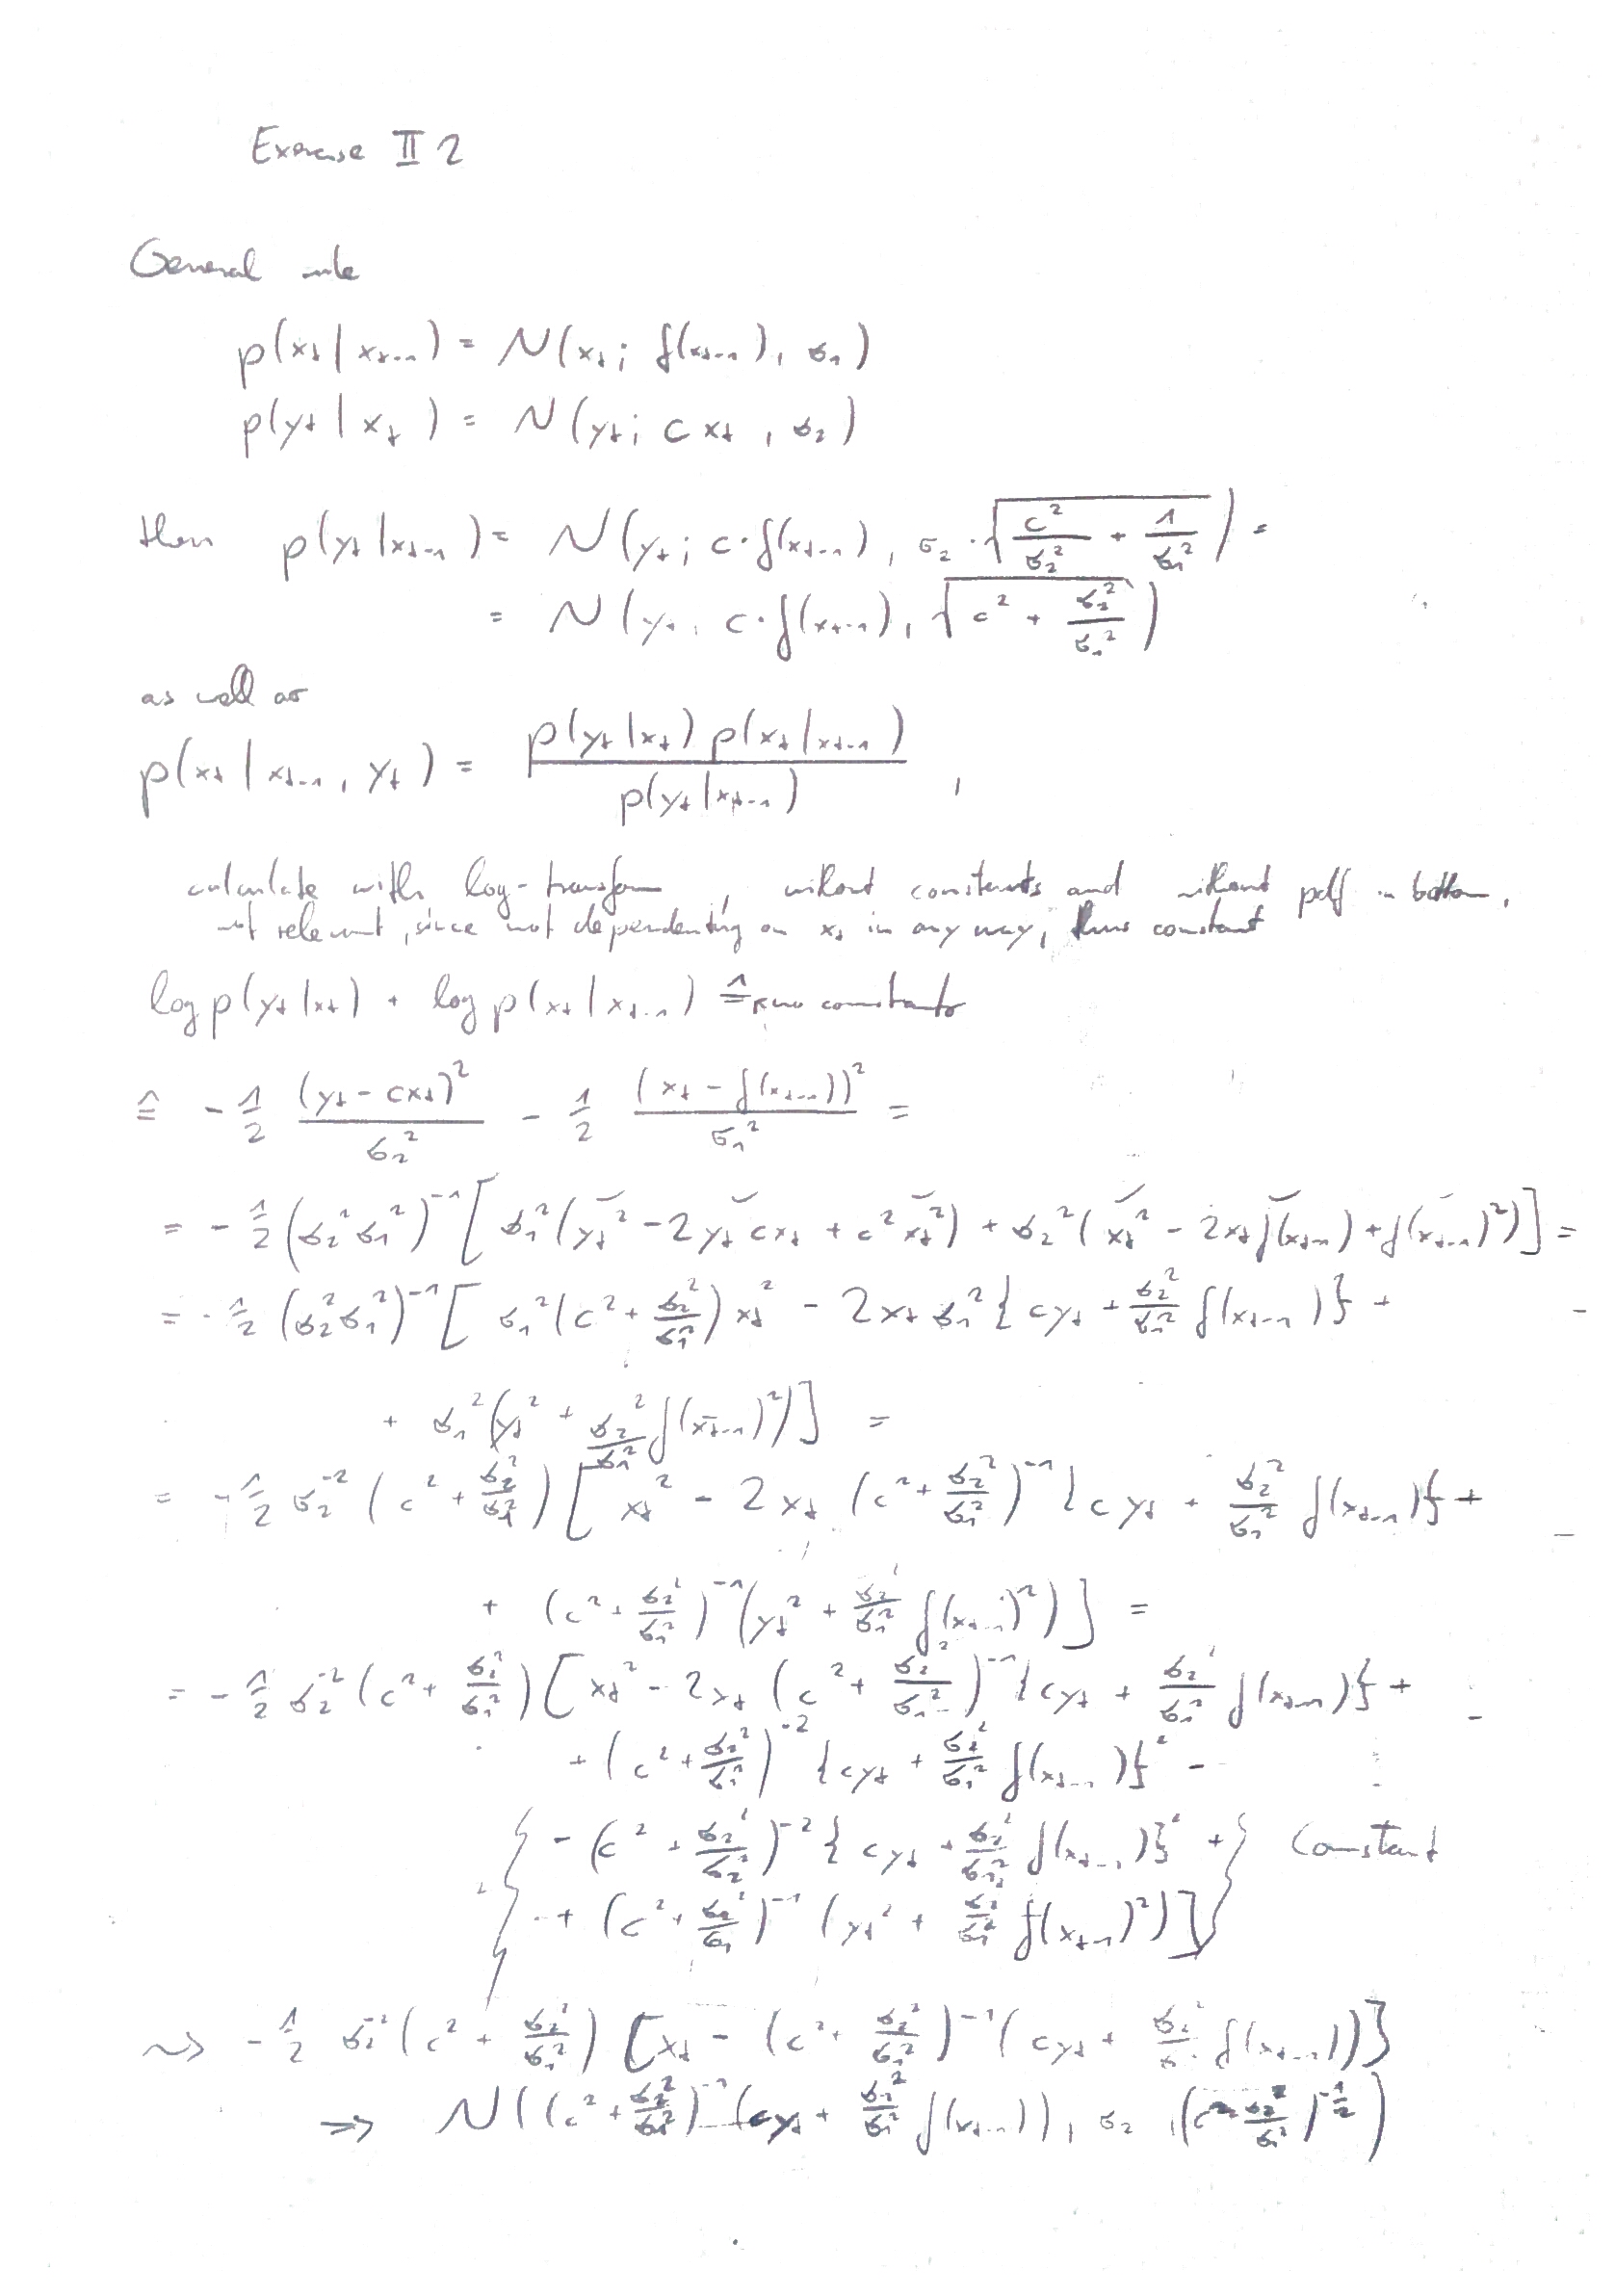 Exercise II 2
General rule
p(x_t | x_{t-1}) = N(x_t; f(x_{t-1}), σ_1)
p(y_t | x_t) = N(y_t; c x_t, σ_2)
then p(y_t | x_{t-1}) = N(y_t; c·f(x_{t-1}), σ_2 · √(c²/σ_2² + 1/σ_1²)) =
= N(y_t, c·f(x_{t-1}), √(c² + σ_2²/σ_1²))
as well as
p(x_t | x_{t-1}, y_t) = p(y_t | x_t) p(x_t | x_{t-1}) / p(y_t | x_{t-1}) ,
calculate with log-transform, without constants and without pdf in bottom,
not relevant, since not dependenting on x_t in any way, thus constant
log p(y_t | x_t) + log p(x_t | x_{t-1}) ≙ constants
≙ - 1/2 (y_t - c x_t)²/σ_2² - 1/2 (x_t - f(x_{t-1}))²/σ_1² =
= - 1/2 (σ_2² σ_1²)^{-1} [ σ_1² (y_t² - 2 y_t c x_t + c² x_t²) + σ_2² (x_t² - 2 x_t f(x_{t-1}) + f(x_{t-1})²) ] =
= - 1/2 (σ_2² σ_1²)^{-1} [ σ_1² (c² + σ_2²/σ_1²) x_t² - 2 x_t σ_1² { c y_t + σ_2²/σ_1² f(x_{t-1}) } +
+ σ_1² (y_t² + σ_2²/σ_1² f(x_{t-1})²) ] =
= - 1/2 σ_2^{-2} (c² + σ_2²/σ_1²) [ x_t² - 2 x_t (c² + σ_2²/σ_1²)^{-1} { c y_t + σ_2²/σ_1² f(x_{t-1}) } +
+ (c² + σ_2²/σ_1²)^{-1} (y_t² + σ_2²/σ_1² f(x_{t-1})²) ] =
= - 1/2 σ_2^{-2} (c² + σ_2²/σ_1²) [ x_t² - 2 x_t (c² + σ_2²/σ_1²)^{-1} { c y_t + σ_2²/σ_1² f(x_{t-1}) } +
+ (c² + σ_2²/σ_1²)^{-2} { c y_t + σ_2²/σ_1² f(x_{t-1}) }² -
- (c² + σ_2²/σ_2²)^{-2} { c y_t + σ_2²/σ_1² f(x_{t-1}) }² + } Constant
+ (c² + σ_2²/σ_1)^{-1} (y_t² + σ_2²/σ_1² f(x_{t-1})²) ]
⇝ - 1/2 σ_2^{-2} (c² + σ_2²/σ_1²) [ x_t - (c² + σ_2²/σ_1²)^{-1} (c y_t + σ_2²/σ f(x_{t-1})) ]
⇒ N((c² + σ_2²/σ_1²)^{-1} (c y_t + σ_2²/σ_1² f(x_{t-1})), σ_2 , (c² + σ_2²/σ_1²)^{-1/2})